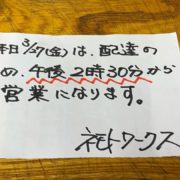 本日3/17(金)は、配達の
め、午後2時30分から
営業になります。
ネモトワークス